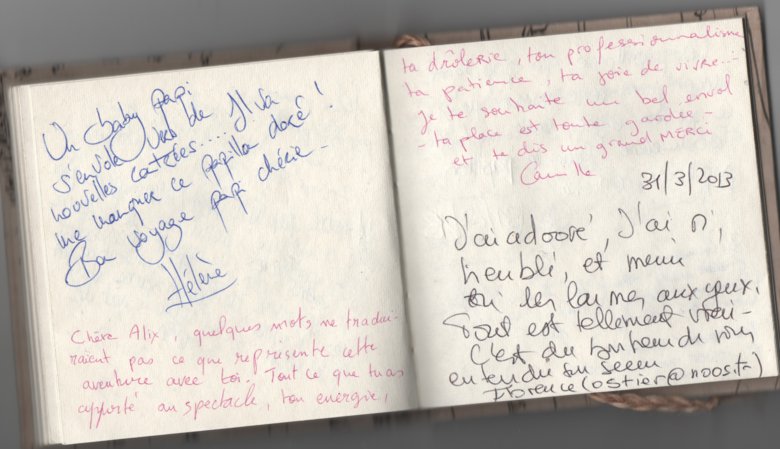 Un baby papi
s'envole vers de
nouvelles contrées.... Il va
me manquer ce papillon doré !
Bon voyage papi chérie -
Hélène
Chère Alix, quelques mots ne tradui-
raient pas ce que représente cette
aventure avec toi. Tout ce que tu as
apporté au spectacle, ton energie,
ta drôlerie, ton professionnalisme
ta patience, ta joie de vivre...-
Je te souhaite un bel envol
- ta place est toute gardée -
et te dis un grand MERCI
Camille
31/3/2013
J'ai adooré, J'ai ri,
les larmes aux yeux.
Tout est tellement vrai -
C'est du bonheur de
Florence (ostior@noos.fr)